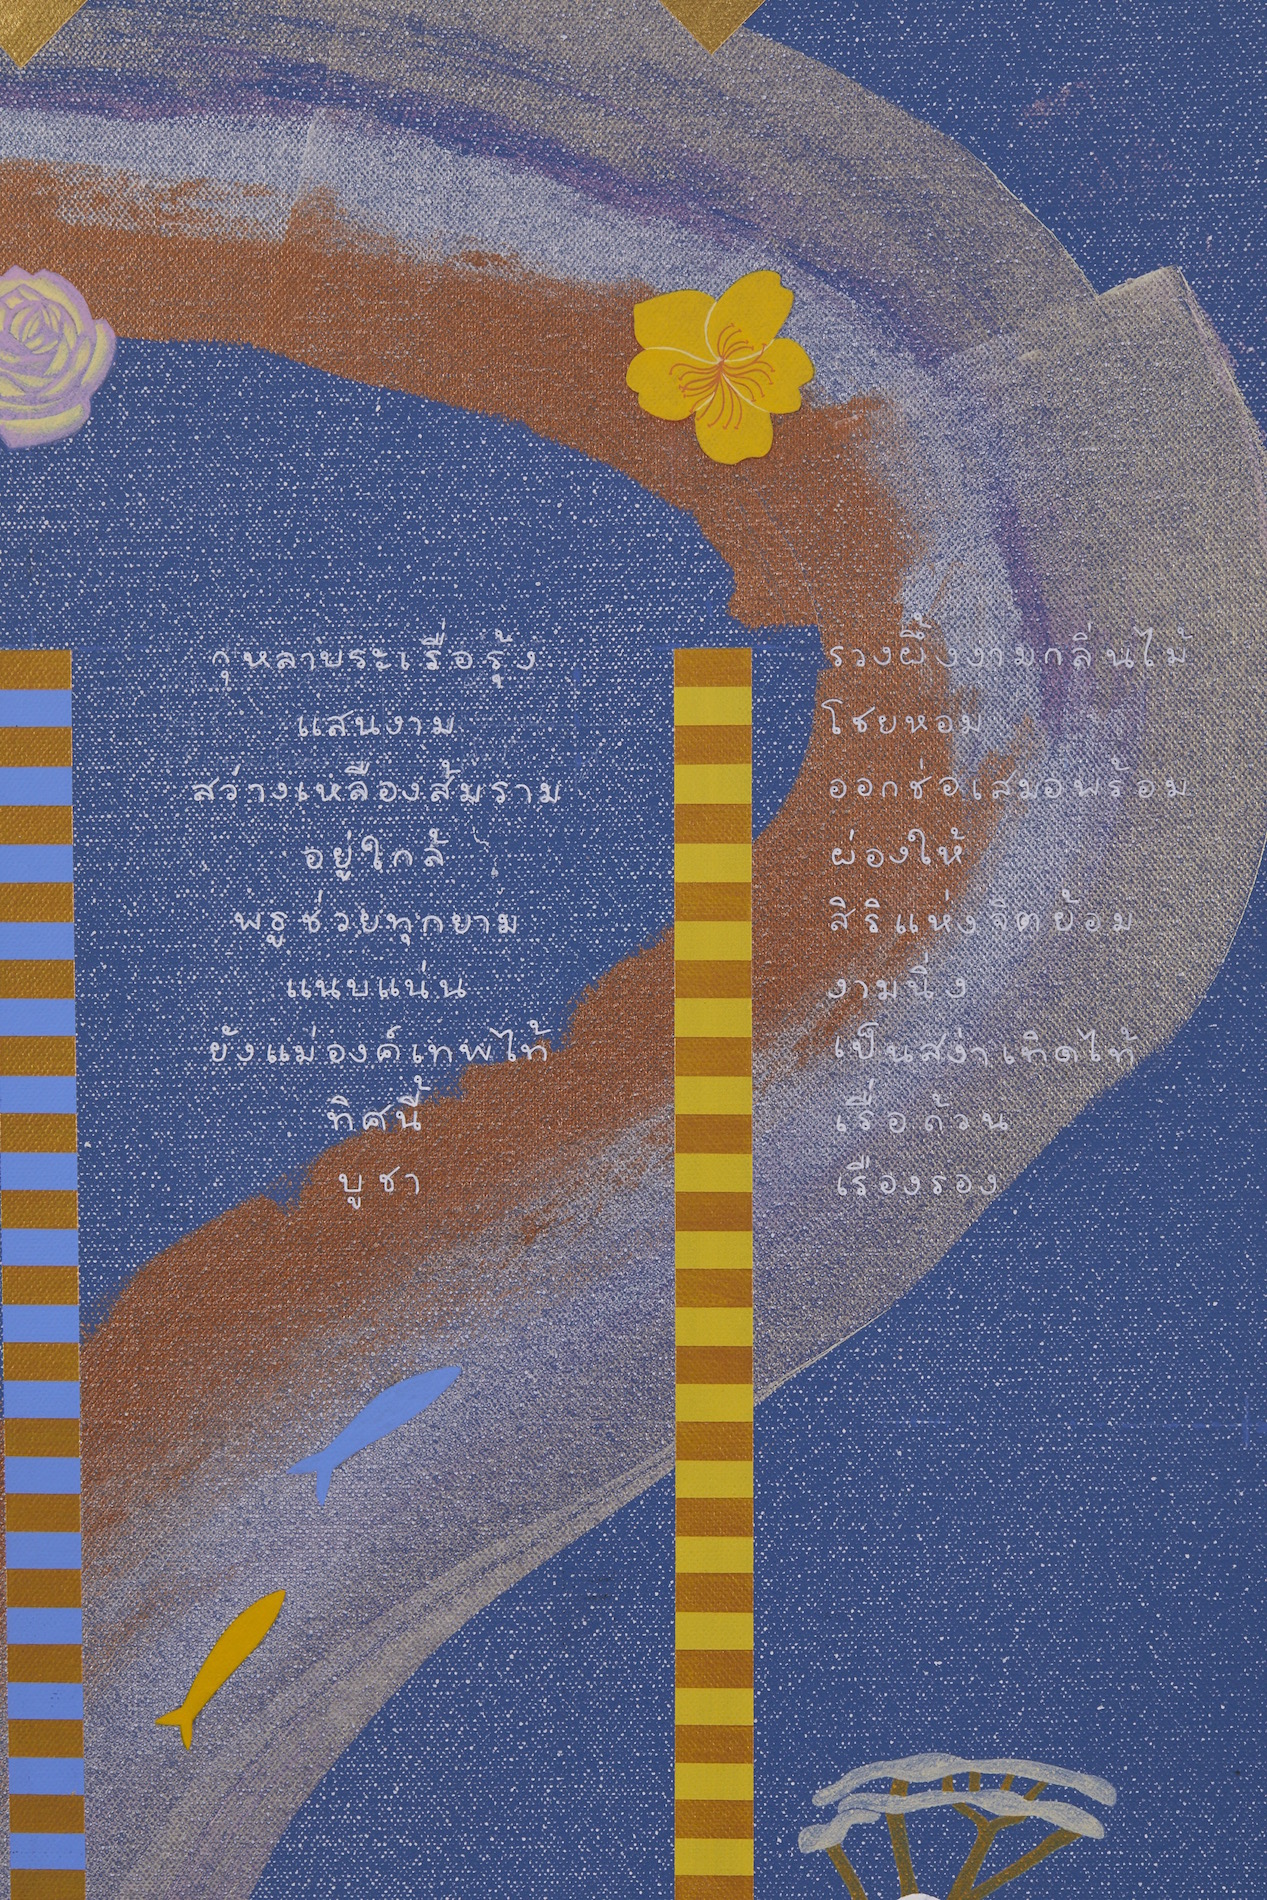 กุหลาบระเรื่อรุ้ง
แสนงาม
สว่างเหลืองส้มราม
อยู่ใกล้
พธูช่วยทุกยาม
แนบแน่น
ยังแม่องค์เทพไท้
ทิศนี้
บูชา
รวงผึ้งงามกลิ่นไม้
โชยหอม
ออกช่อเสมอพร้อม
ผ่องให้
สิริแห่งจิตย้อม
งามนิ่ง
เป็นสง่าเทิดไท้
เรื่อถ้วน
เรืองรอง